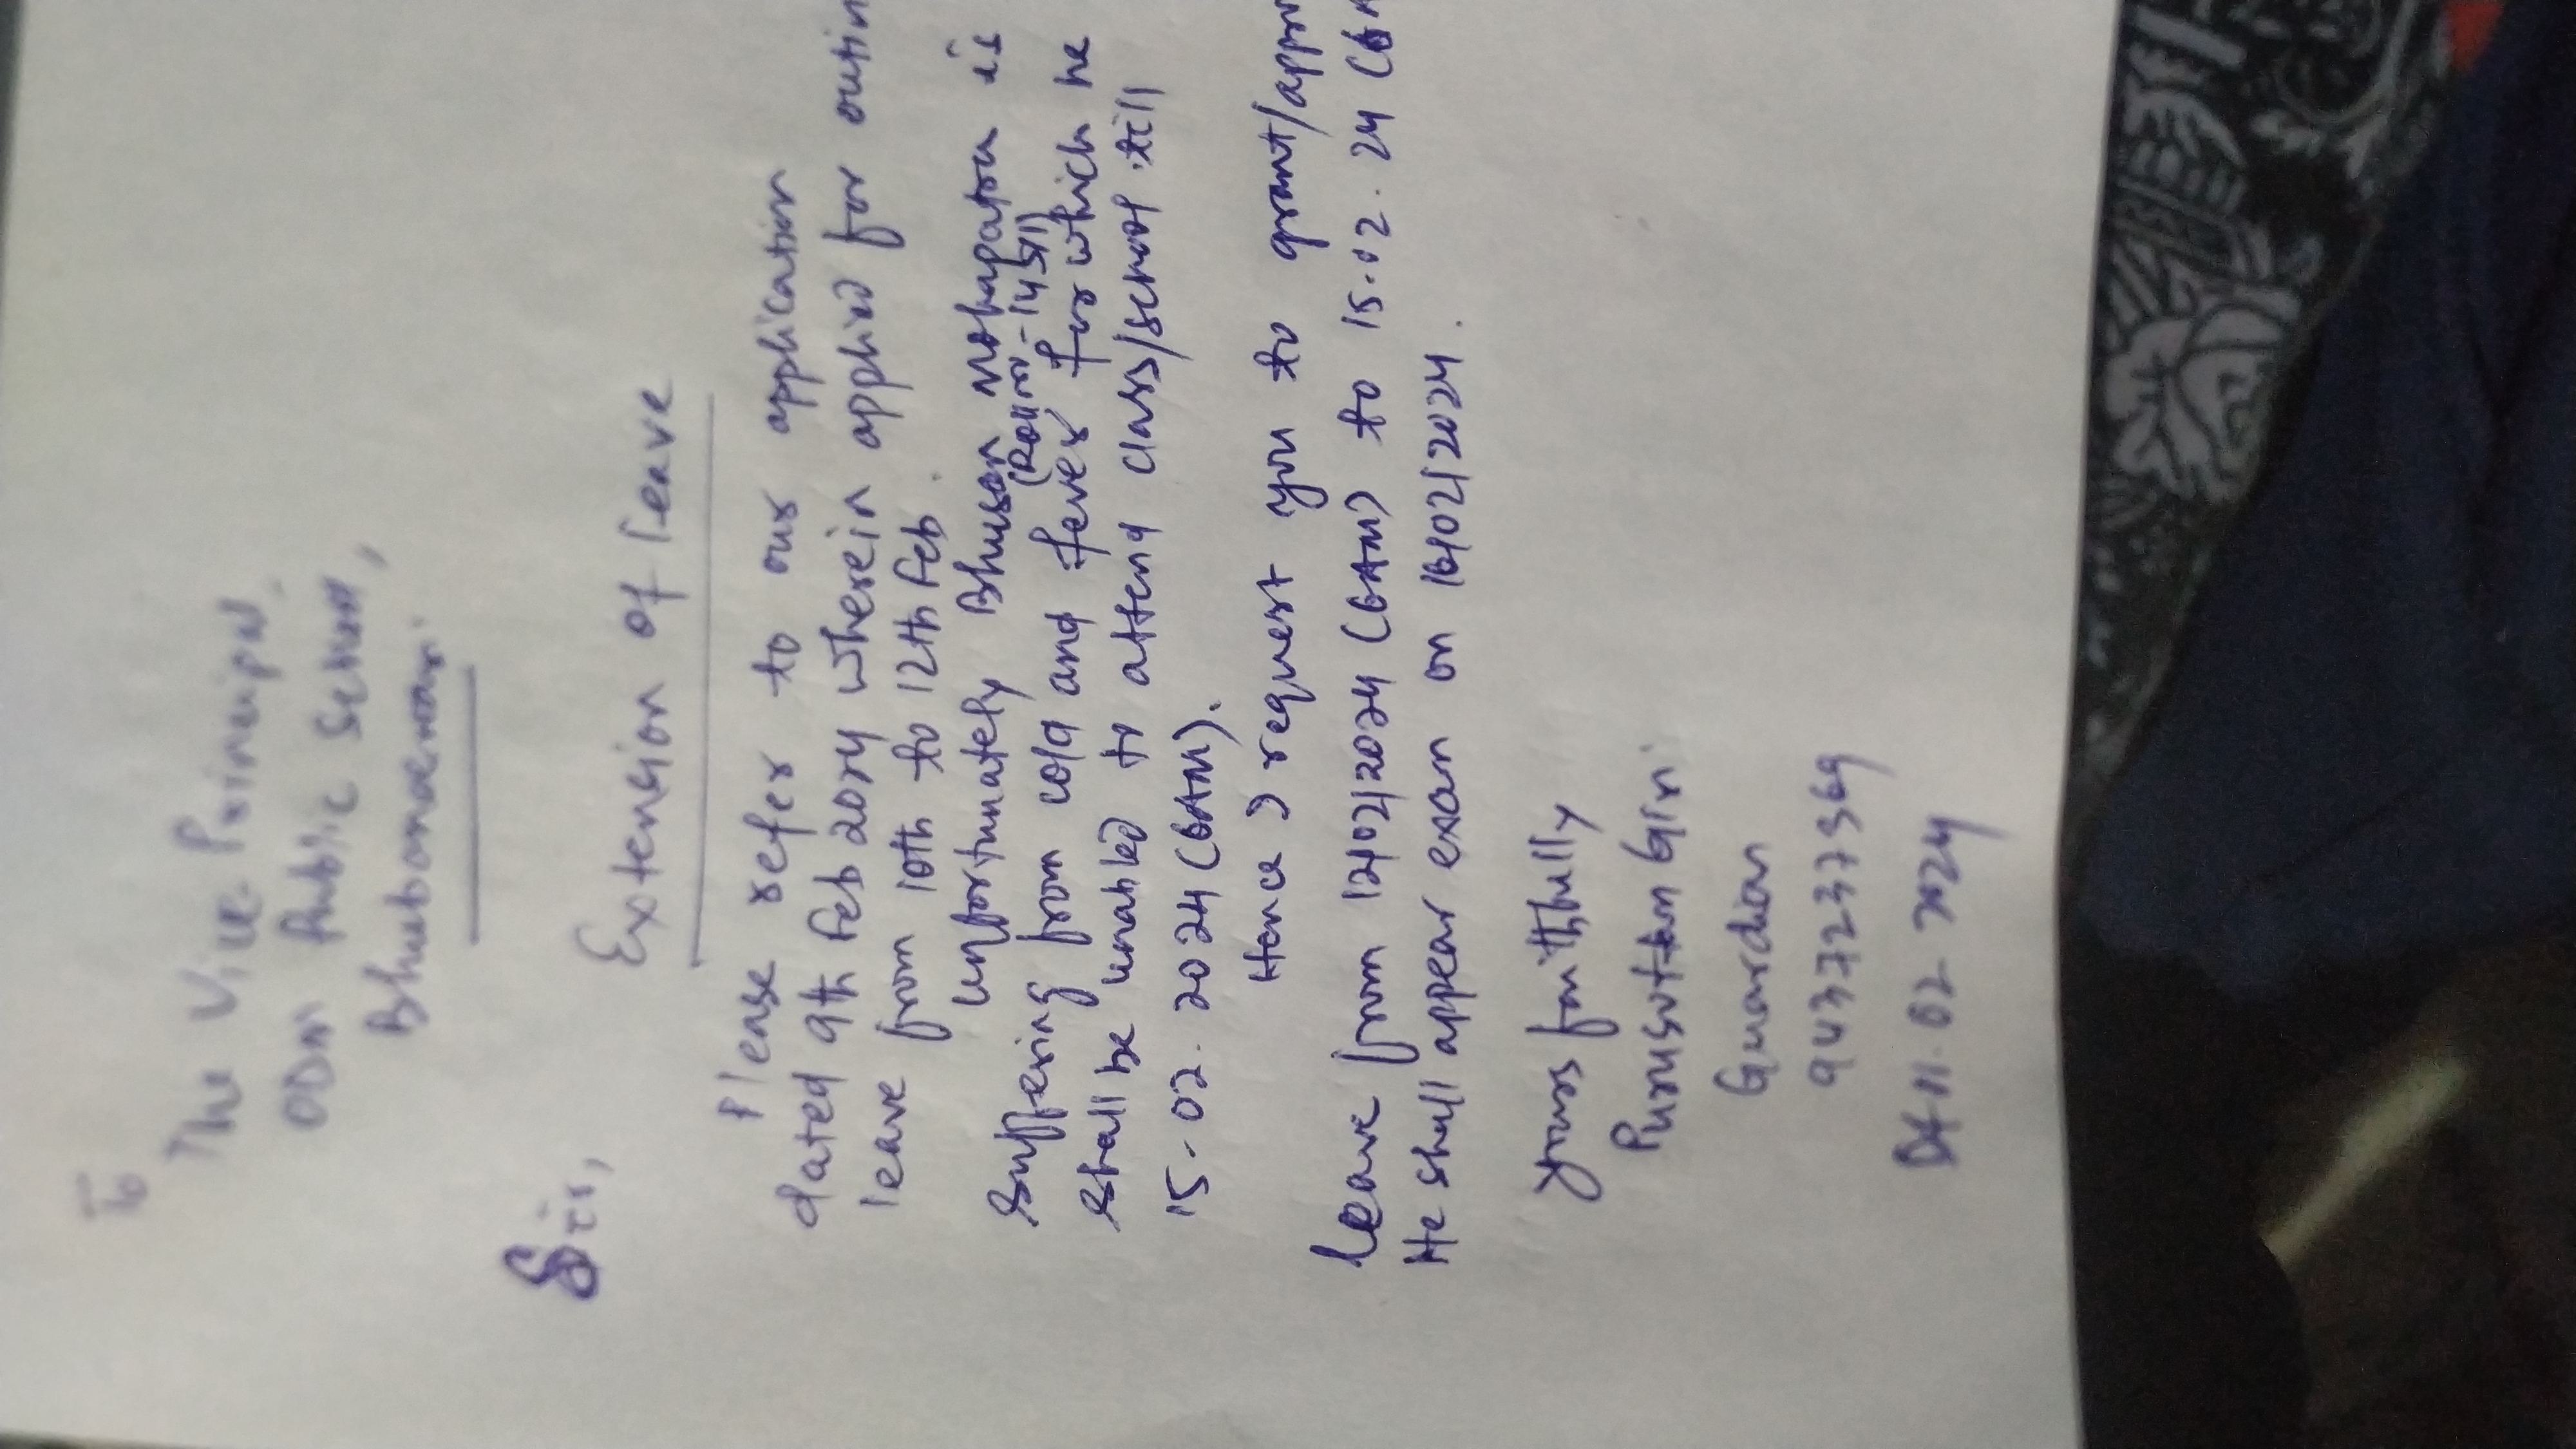 To
The Vice-Principal,
ODM Public School,
Bhubaneswar.
Sir,
Extension of leave
Please refer to our application
dated 9th Feb 2024 wherein applied for outin
leave from 10th to 12th Feb.
Unfortunately Bhusan Mohapatra is
(Roll no-14571)
suffering from cold and fever for which he
shall be unabled to attend class/school till
15.02.2024 (6AM).
Hence I request you to grant/appro
leave from 12/02/2024 (6AM) to 15.02.24 (6A
He shall appear exam on 16/02/2024.
yours faithfully
Purusottam Giri
Guardian
9437237369
Dt 11.02.2024